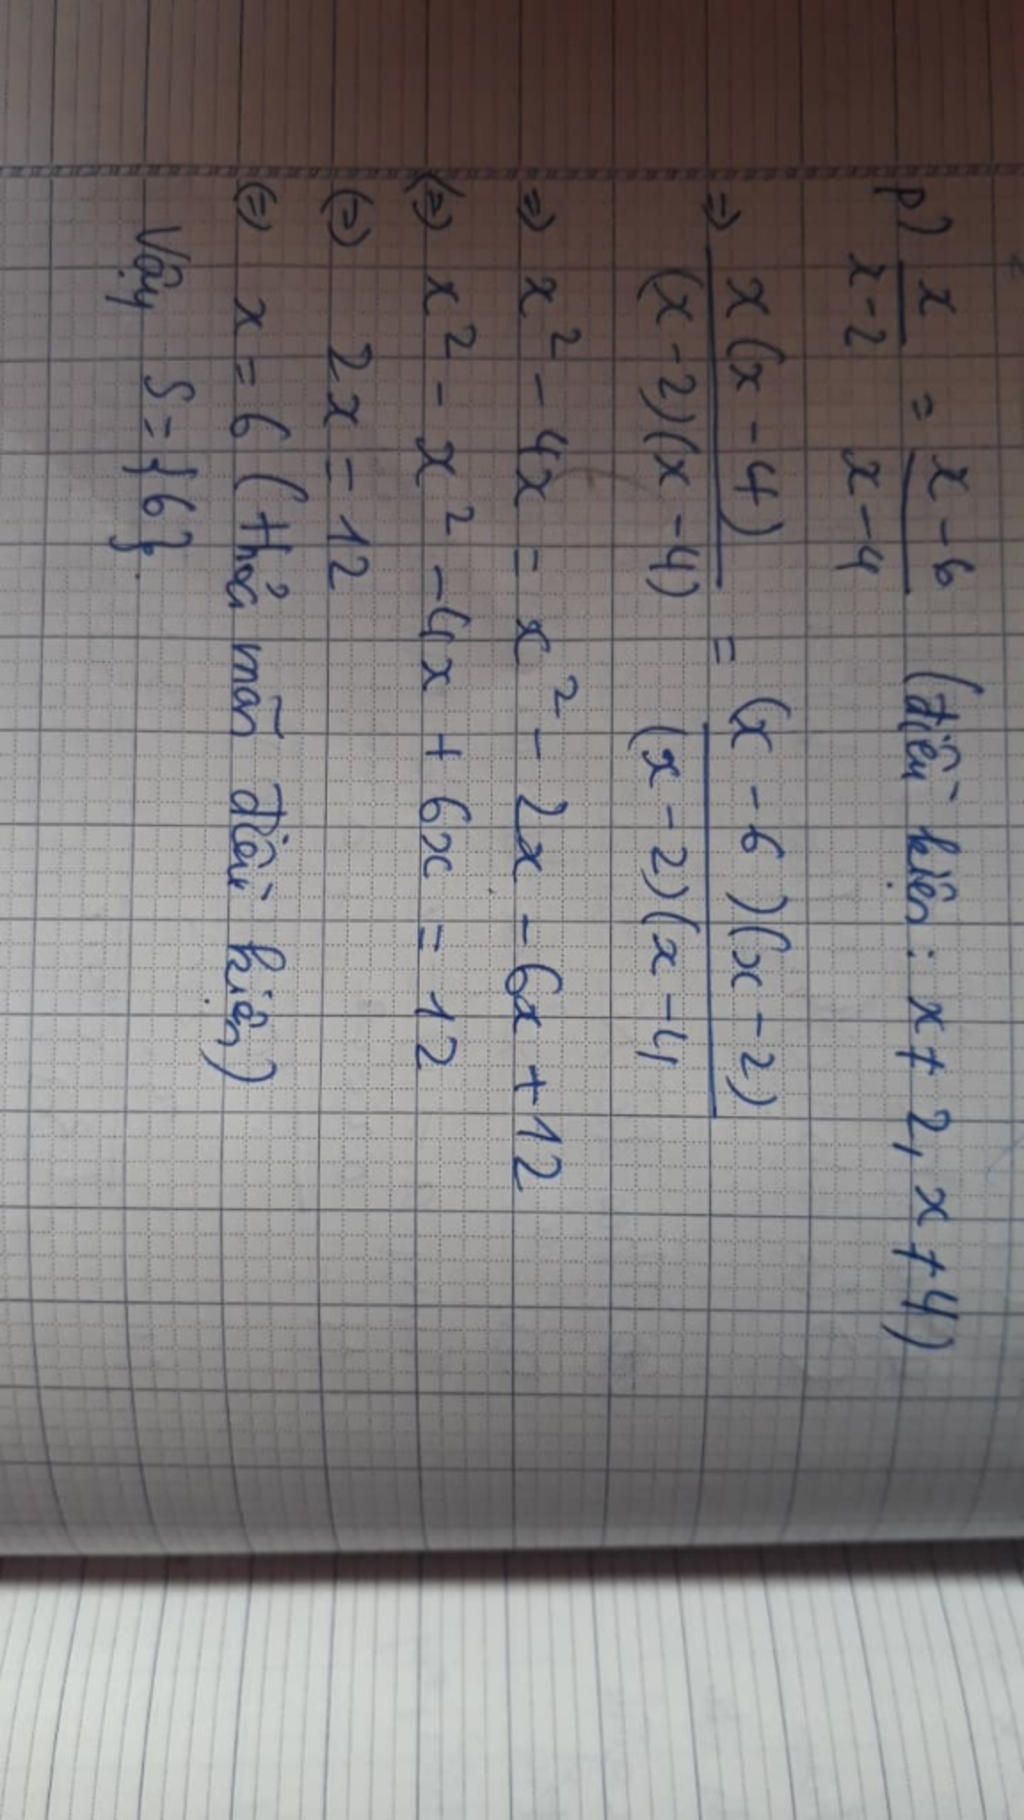 p) x/x-2 = x-6/x-4 (điều kiện: x ≠ 2, x ≠ 4)
=> x(x-4)/(x-2)(x-4) = (x-6)(x-2)/(x-2)(x-4
=> x² - 4x = x² - 2x - 6x + 12
(=) x² - x² - 4x + 6x = 12
(=) 2x = 12
(=) x = 6 (thỏa mãn điều kiện)
Vậy S = {6}.